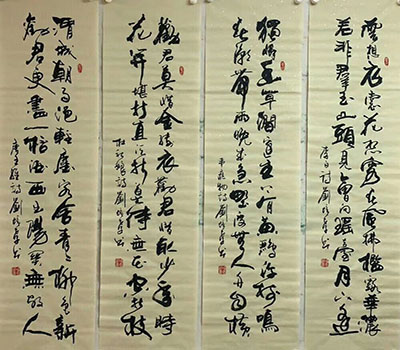 雲想衣裳花想容春風拂檻露華濃
若非羣玉山頭見會向瑤臺月下逢
李白詩劉書
獨憐幽草澗邊生上有黃鸝深樹鳴
春潮帶雨晚來急野渡無人舟自橫
韋應物詩劉書
勸君莫惜金縷衣勸君惜取少年時
花開堪折直須折莫待無花空折枝
杜秋娘詩劉書
渭城朝雨浥輕塵客舍青青柳色新
勸君更盡一杯酒西出陽關無故人
唐王維詩劉書